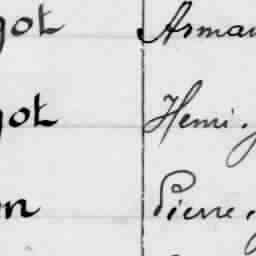 got Arman
got Henri.
on Pierre.